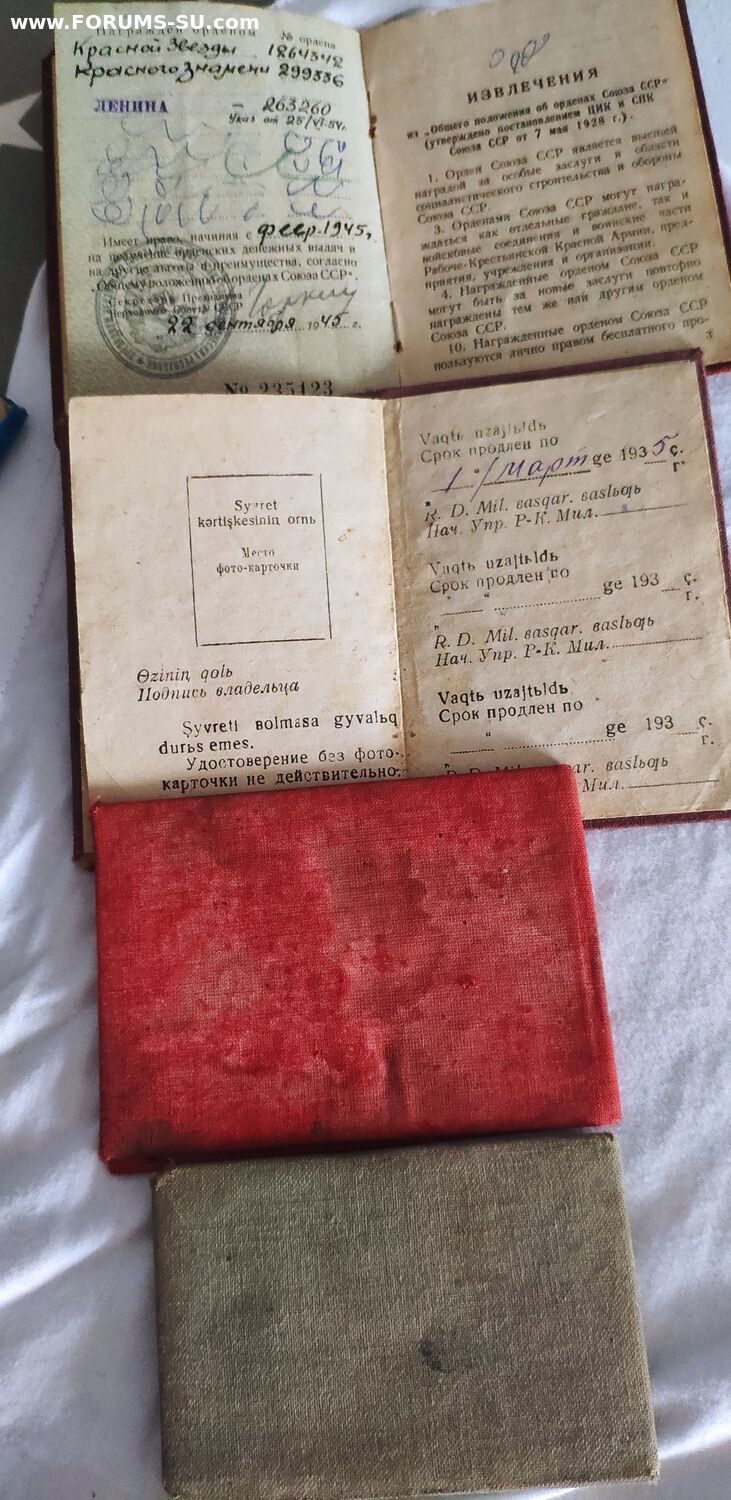 www.FORUMS-SU.com
Награжден орденом № ордена
Красной Звезды 1864348
Красного знамени 299336
ЛЕНИНА — 263260
Указ от 25/VI-54г.
Имеет право, начиная с февр. 1945,
на получение орденских денежных выдач и
на другие льготы и преимущества, согласно
„Общему положению об орденах Союза ССР“.
Секретарь Президиума
Верховного Совета СССР
22 сентября 1945 г.
№ 235123
ИЗВЛЕЧЕНИЯ
из „Общего положения об орденах Союза ССР“
(утверждено постановлением ЦИК и СНК
Союза ССР от 7 мая 1928 г.).
1. Орден Союза ССР является высшей
наградой за особые заслуги в области
социалистического строительства и обороны
Союза ССР.
3. Орденами Союза ССР могут награ-
ждаться как отдельные граждане, так и
войсковые соединения и воинские части
Рабоче-Крестьянской Красной Армии, пред-
приятия, учреждения и организации.
4. Награжденные орденом Союза ССР
могут быть за новые заслуги повторно
награждены тем же или другим орденом
Союза ССР.
10. Награжденные орденом Союза ССР
пользуются лично правом бесплатного про-
3
Syret
kərtişkesinin ornь
Место
фото-карточки
Өzinin qolь
Подпись владельца
Şyvreti вolmasa gyvalьq
durьs emes.
Удостоверение без фото-
карточки не действительно.
Vaqtь uzajtьldь
Срок продлен по
„1“ Март ge 1935 ç.
г.
R. D. Mil. вasqar. вaslьƣь
Нач. Упр. Р-К. Мил.
Vaqtь uzajtьldь
Срок продлен по
„ “ ge 193 ç.
г.
R. D. Mil. вasqar. вaslьƣь
Нач. Упр. Р-К. Мил.
Vaqtь uzajtьldь
Срок продлен по
„ “ ge 193 ç.
г.
R. D. Mil. вasqar. вaslьƣь
Мил.